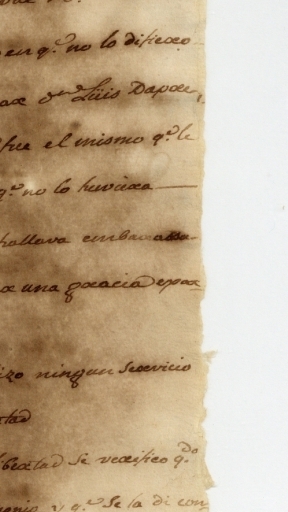 en q.e no lo difiexo
Luis Dapox
fue el mismo q.e le
q.e no lo huviexa
hallava embaxassa
una gxacia
ningun sexvicio
tad
libextad se vexifico q.do
y q.e se la di con